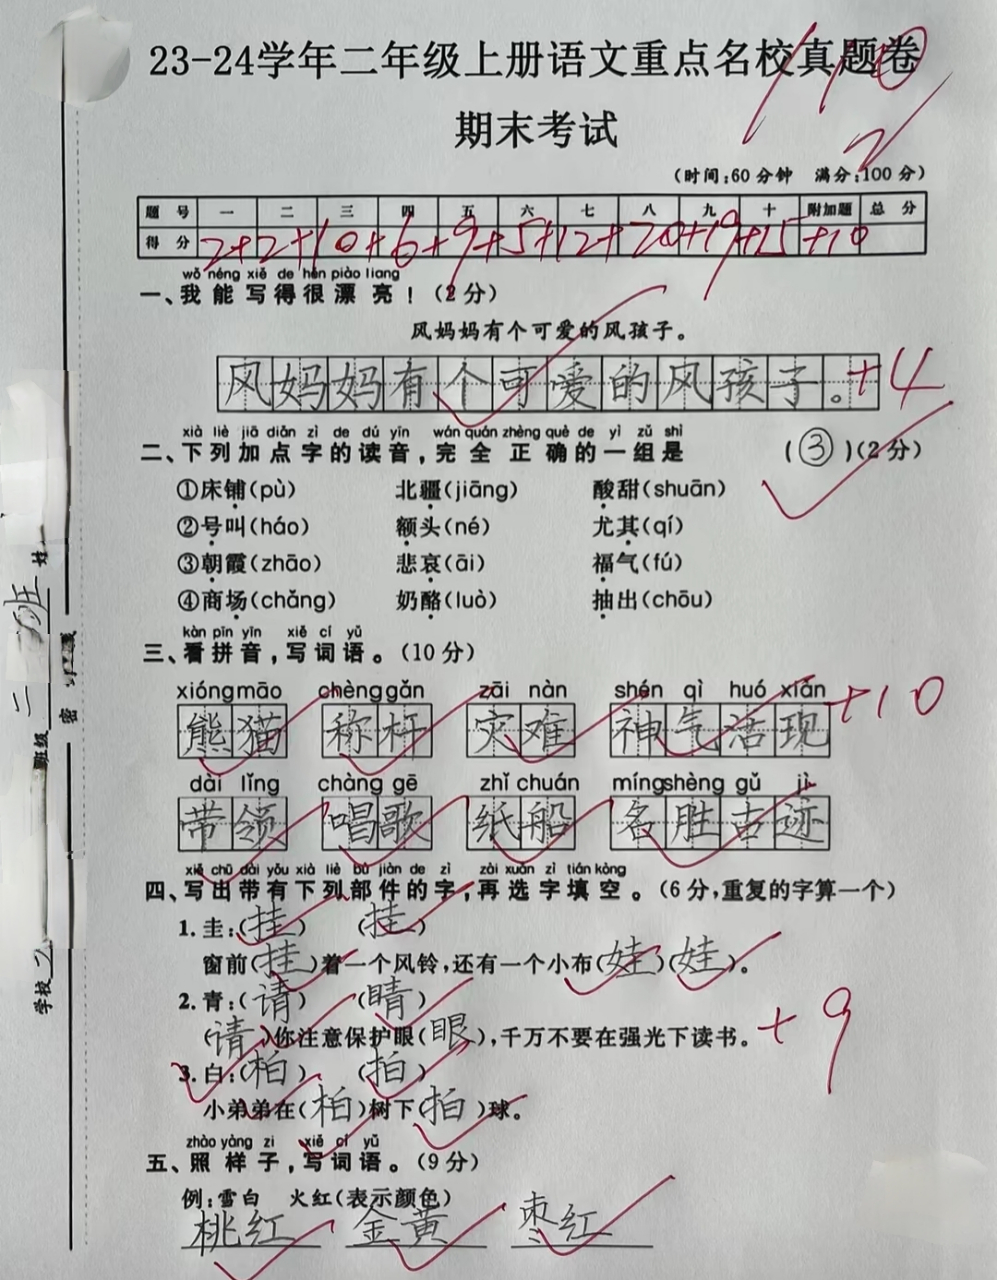 23-24学年二年级上册语文重点名校真题卷
110
期末考试
2
(时间:60分钟 满分:100分)
题号 一 二 三 四 五 六 七 八 九 十 附加题 总分
得分 2+2+10+6+9+5+12+20+19+15+10
wǒ néng xiě de hěn piào liang
一、我能写得很漂亮!(2分)
风妈妈有个可爱的风孩子。
风妈妈有个可爱的风孩子。
+4
xià liè jiā diǎn zì de dú yīn wán quán zhèng què de yì zǔ shì
二、下列加点字的读音,完全正确的一组是 (③)(2分)
①床铺(pù) 北疆(jiāng) 酸甜(shuān)
②号叫(háo) 额头(né) 尤其(qí)
③朝霞(zhāo) 悲哀(āi) 福气(fú)
④商场(chǎng) 奶酪(luò) 抽出(chōu)
kàn pīn yīn xiě cí yǔ
三、看拼音,写词语。(10分)
xióng māo chèng gǎn zāi nàn shén qì huó xiàn
熊猫 称杆 灾难 神气活现
+10
dài lǐng chàng gē zhǐ chuán míng shèng gǔ jì
带领 唱歌 纸船 名胜古迹
xiě chū dài yǒu xià liè bù jiàn de zì zài xuǎn zì tián kòng
四、写出带有下列部件的字,再选字填空。(6分,重复的字算一个)
1.圭:(挂) (挂)
窗前(挂)着一个风铃,还有一个小布(娃)(娃)。
2.青:(请) (睛)
(请)你注意保护眼(眼),千万不要在强光下读书。
+9
3.白:(柏) (拍)
小弟弟在(柏)树下(拍)球。
zhào yàng zi xiě cí yǔ
五、照样子,写词语。(9分)
例:雪白 火红(表示颜色)
桃红 金黄 枣红
学校 2
班级 二 班
姓
密